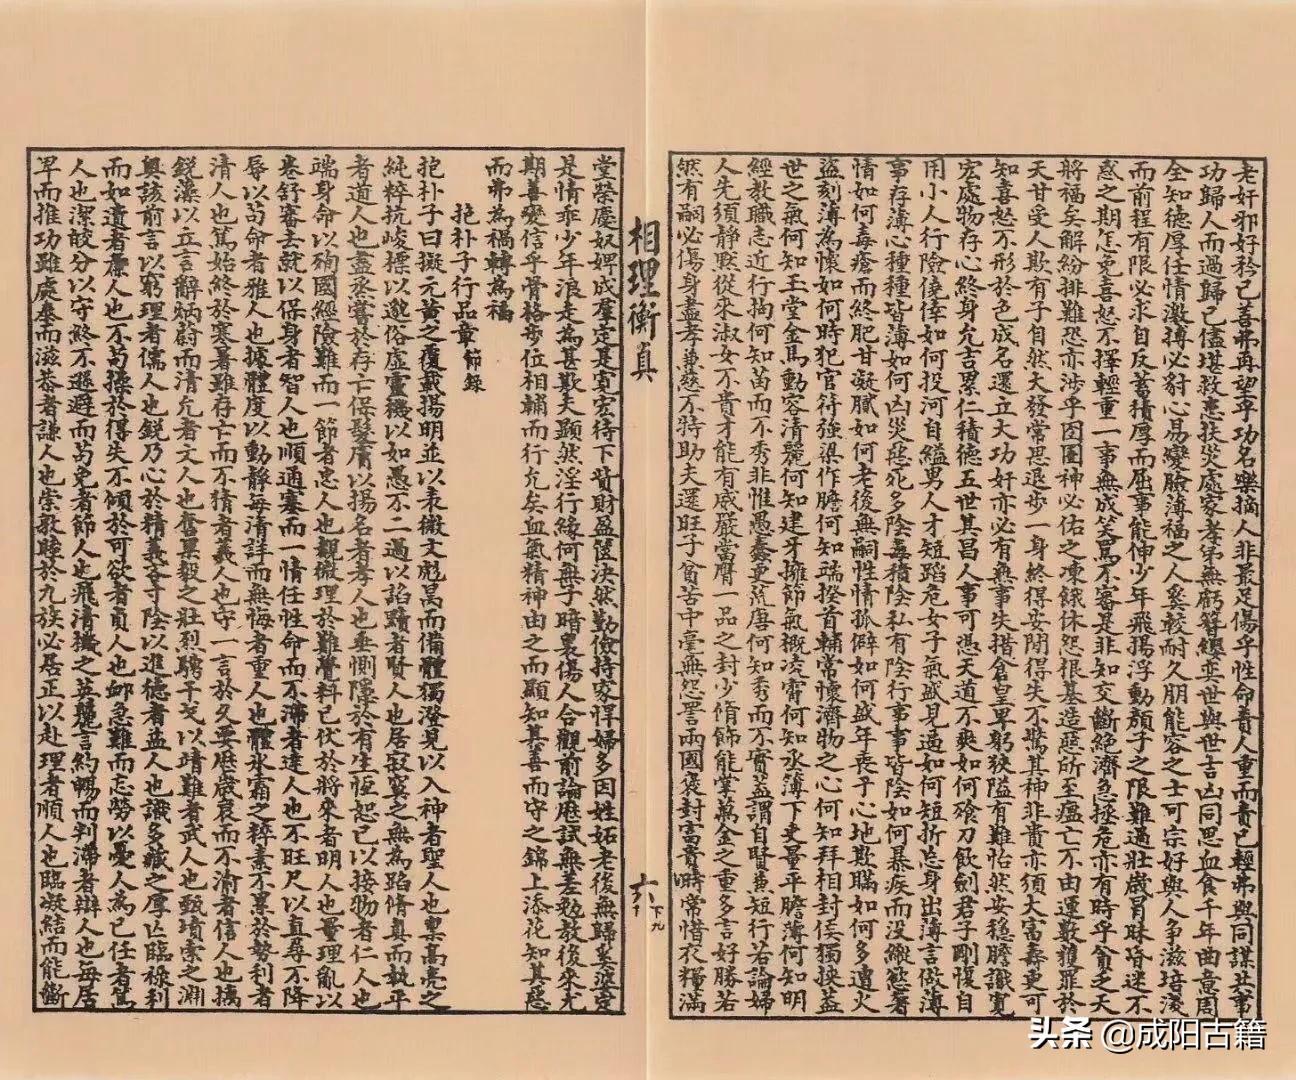 老奸邪好矜己善弗再望乎功名樂摘人非最足傷乎性命責人重而責己輕弗與同謀共事
功歸人而過歸己儘堪救患扶災處家孝弟無虧簪纓奕世與世吉凶同患血食千年曲意周
全知德厚任情激搏必豺心易變臉薄福之人奚較耐久朋能容之士可宗好與人爭滋培淺
而前程有限必求自反蓄積厚而屈事能伸少年飛揚浮動顏子之限難過壯歲冒昧昏迷不
惑之期怎免喜怒不擇輕重一事無成笑罵不審是非知交斷絕濟急拯危亦有時乎貧乏天
將福矣解紛排難恐亦涉乎囹圄神必佑之凍餓休怨很基造惡所至瘟亡不由運數獲罪於
天甘受人欺有子自然大發常思退步一身終得安閒得失不驚其神非貴亦須大富壽更可
知喜怒不形於色成名還立大功奸亦必有無事失措倉皇卑躬狹隘有難怡然安穩膽識寬
宏處物存心終身允吉累仁積德五世其昌人事可憑天道不爽如何飱刀飲劍君子剛愎自
用小人行險僥倖如何投河自縊男人才短蹈危女子氣盛見逼如何短折忘身出薄言做薄
事存薄心種種皆薄如何凶災惡死多陰毒積陰私有陰行事事皆陰如何暴疾而沒縱慾著
情如何毒瘡而終肥甘凝膩如何老後無嗣性情孤僻如何盛年喪子心地欺瞞如何多遭火
盜刻薄為懷如何時犯官符強梁作膽何知端揆首輔常懷濟物之心何知拜相封侯獨挾蓋
世之氣何知玉堂金馬動容清麗何知建牙擁節氣概凌霄何知丞簿下吏量平膽薄何知明
經教職志近行拘何知苗而不秀非惟愚蠢更荒唐何知秀而不實蓋謂自賢兼短行若論婦
人先須靜默從來淑女不貴才能有威嚴當膺一品之封少脩飾能掌萬金之重多言好勝若
然有嗣必傷身盡孝兼慈不特助夫還旺子貧苦中毫無怨詈兩國褒封富貴時常惜衣糧滿
相理衡真
六
下九
堂榮慶奴婢成羣定是寬宏待下貲財盈篋決然勤儉持家悍婦多因姓妬老後無歸奚婆定
是情乖少年浪走為甚欺夫顯然淫行緣何無子暗裏傷人合觀前論歷試無差勉教後來允
期善變信乎骨格步位相輔而行允矣血氣精神由之而顯知其善而守之錦上添花知其惡
而弗為禍轉為福
抱朴子行品章節錄
抱朴子曰擬元黃之覆載揚明並以表微文彪昺而備體獨澄見以入神者聖人也稟高亮之
純粹抗峻標以邈俗虛靈機以如愚不二過以諂黷者賢人也居寂寞之無為蹈脩真而執平
者道人也盡烝嘗於存亡保髮膚以揚名者孝人也垂惻隱於有生恆恕己以接物者仁人也
端身命以殉國經險難而一節者忠人也覿微理於難覺料已伏於將來者明人也量理亂以
卷舒審去就以保身者智人也順通塞而一情任性命而不滯者達人也不旺尺以直尋不降
辱以苟命者雅人也據體度以動靜每清詳而無悔者重人也體氷霜之粹素不累於勢利者
清人也篤始終於寒暑雖存亡而不猜者義人也守一言於久要厯歲衰而不渝者信人也摛
銳藻以立言辭炳蔚而清允者文人也奮果毅之壯烈騁干戈以靖難者武人也甄墳索之淵
奧該前言以窮理者儒人也銳乃心於精義吝寸陰以進德者益人也識多藏之厚亡臨祿利
而如遺者廉人也不苟操於得失不傾於可欲者貞人也䘏急難而忘勞以憂人為己任者篤
人也潔皎分以守終不遜避而苟免者節人也飛清機之英麗言約暢而判滯者辯人也每居
卑而推功雖處泰而滋恭者謙人也崇敦睦於九族必居正以赴理者順人也臨凝結而能斷
头条 @成阳古籍